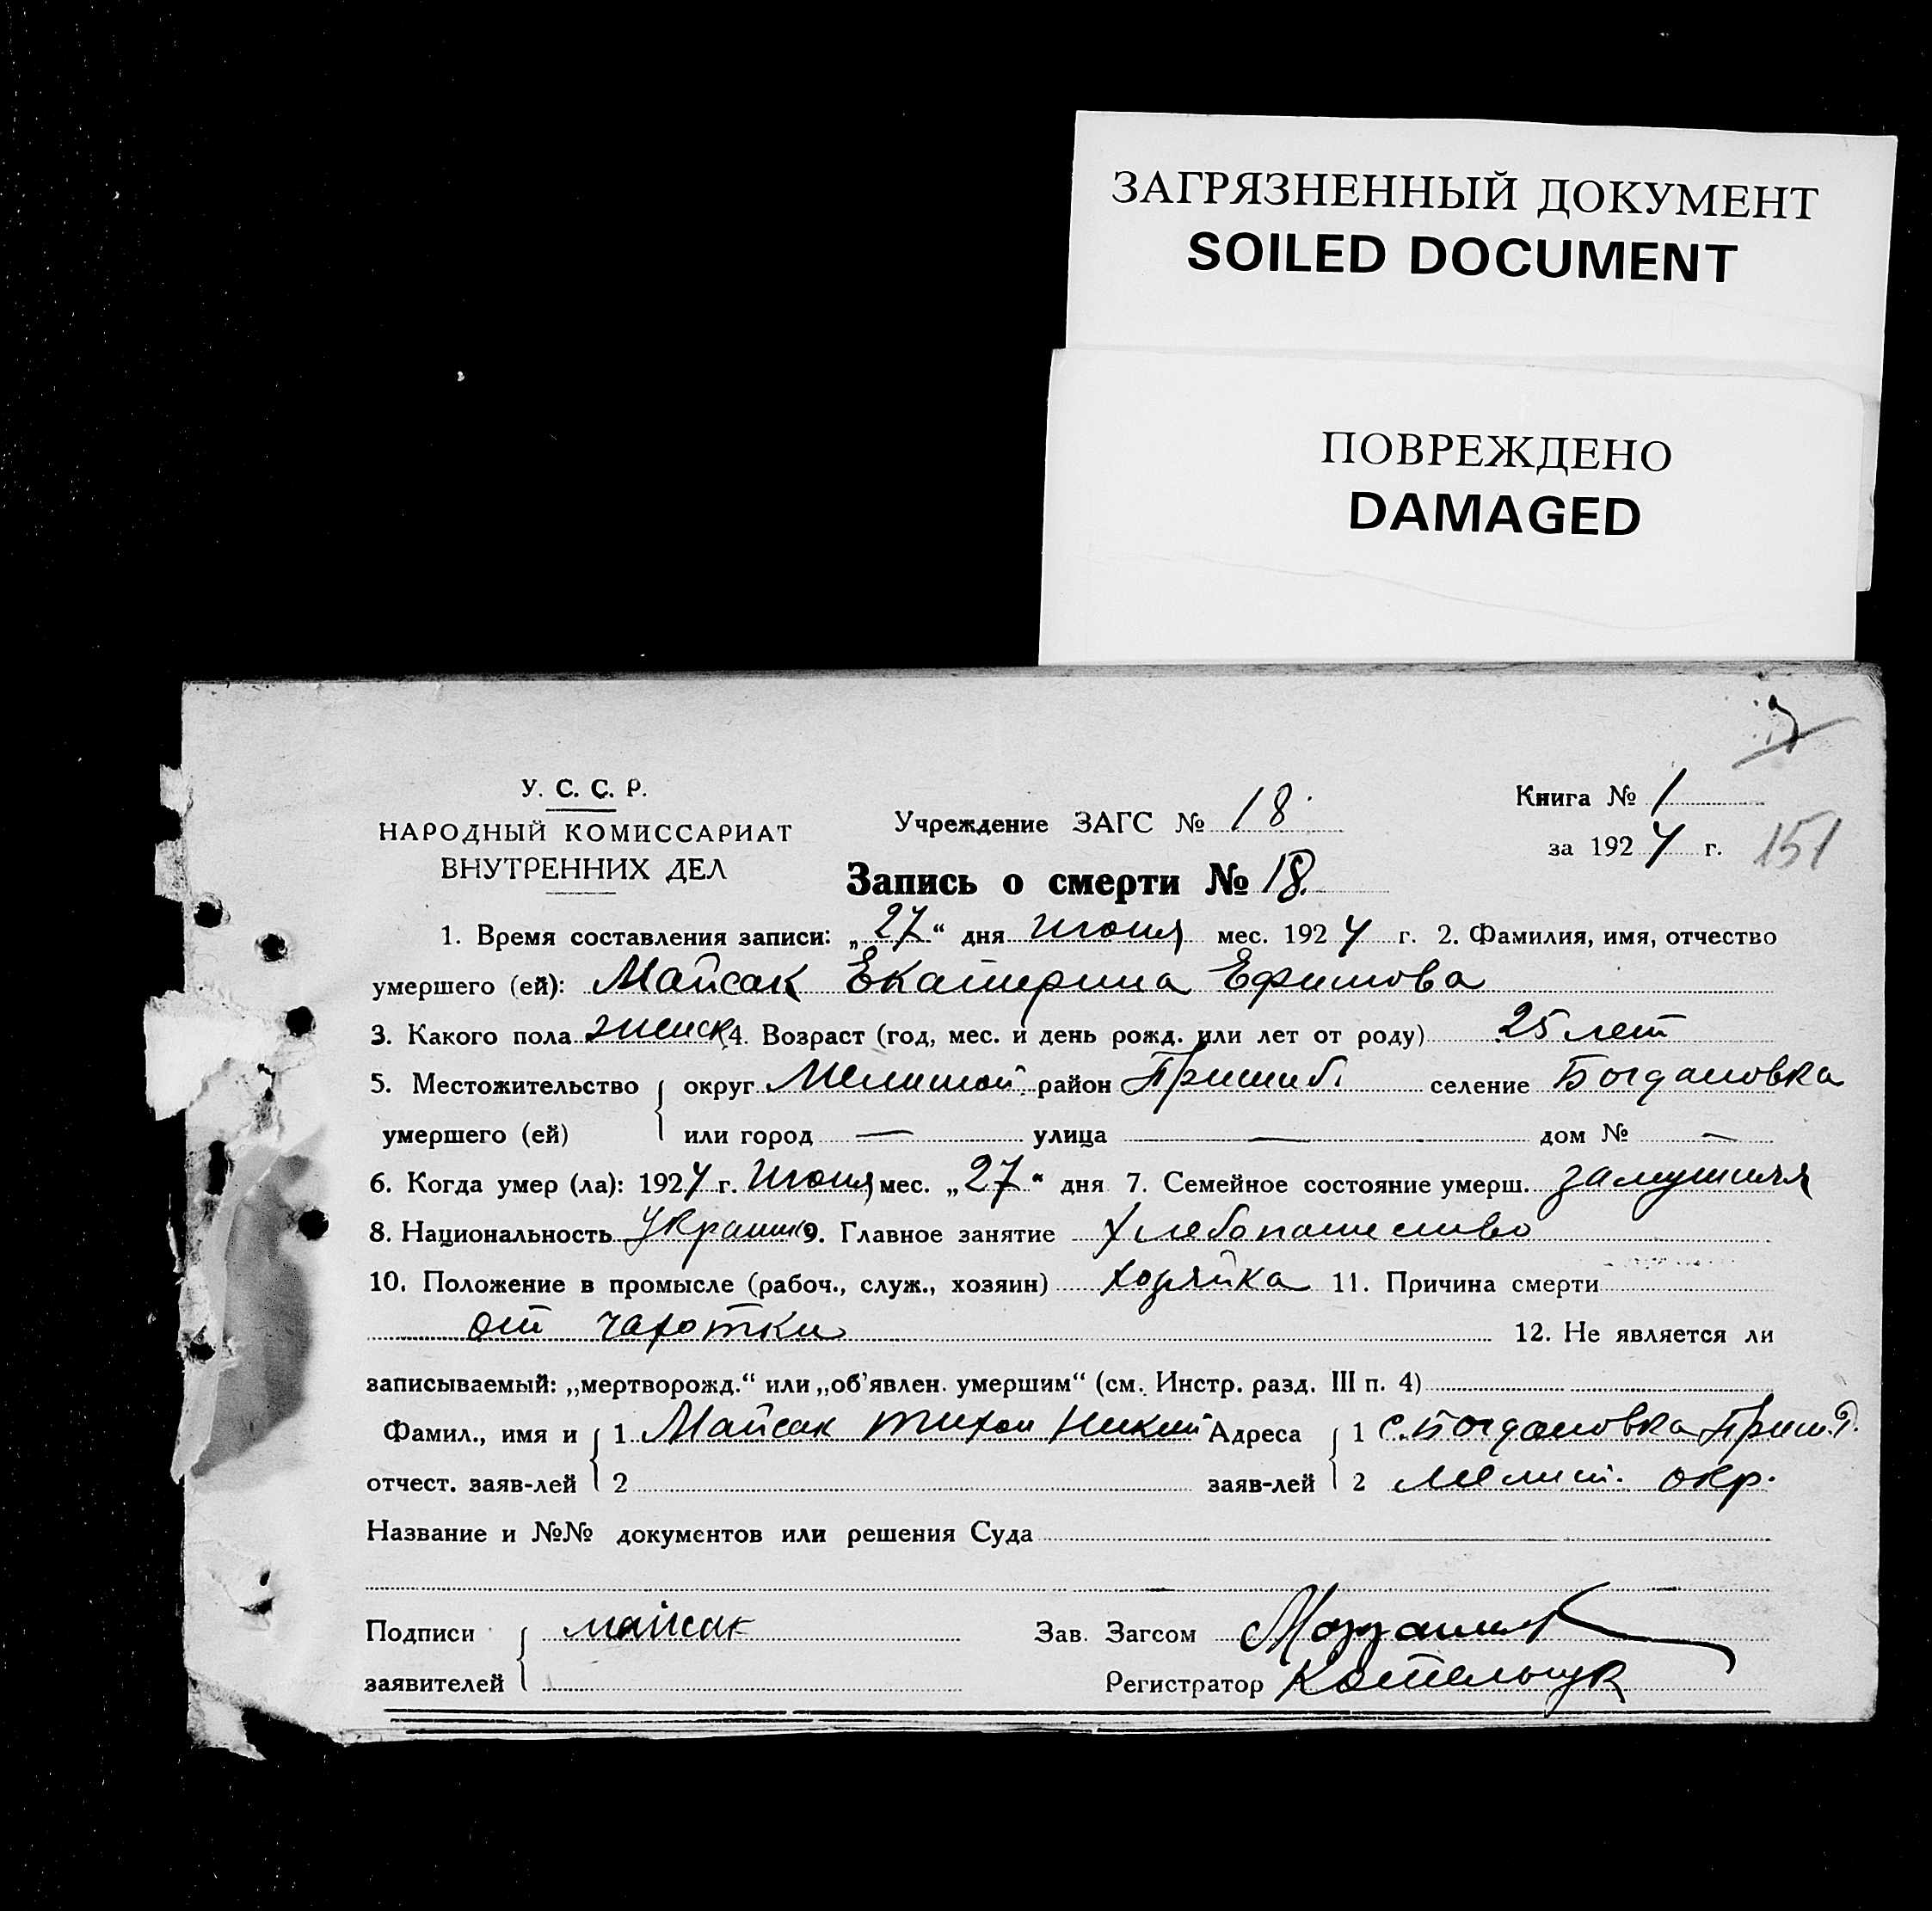 ЗАГРЯЗНЕННЫЙ ДОКУМЕНТ
SOILED DOCUMENT
ПОВРЕЖДЕНО
DAMAGED
У. С. С. Р.
НАРОДНЫЙ КОМИССАРИАТ
ВНУТРЕННИХ ДЕЛ
Учреждение ЗАГС № 18
Книга № 1
за 1924 г. 151
Запись о смерти № 18.
1. Время составления записи: „27“ дня июня мес. 1924 г. 2. Фамилия, имя, отчество
умершего (ей): Майсак Екатерина Ефимова
3. Какого пола женск 4. Возраст (год, мес. и день рожд. или лет от роду) 25 лет
5. Местожительство округ Мелитой район Пришиб. селение Богдановка
умершего (ей) или город — улица — дом № —
6. Когда умер (ла): 1924 г. июня мес. „27“ дня 7. Семейное состояние умерш. замужняя
8. Национальность Украин 9. Главное занятие хлебопашество
10. Положение в промысле (рабоч., служ., хозяин) хозяйка 11. Причина смерти
от чахотки 12. Не является ли
записываемый: „мертворожд.“ или „об'явлен. умершим“ (см. Инстр. разд. III п. 4)
Фамил., имя и 1 Майсак Тихон Никит Адреса 1 с. Богдановка Приш. р.
отчест. заяв-лей 2 заяв-лей 2 Мелит. окр.
Название и №№ документов или решения Суда
Подписи майсак Зав. Загсом
заявителей Регистратор Котельчук